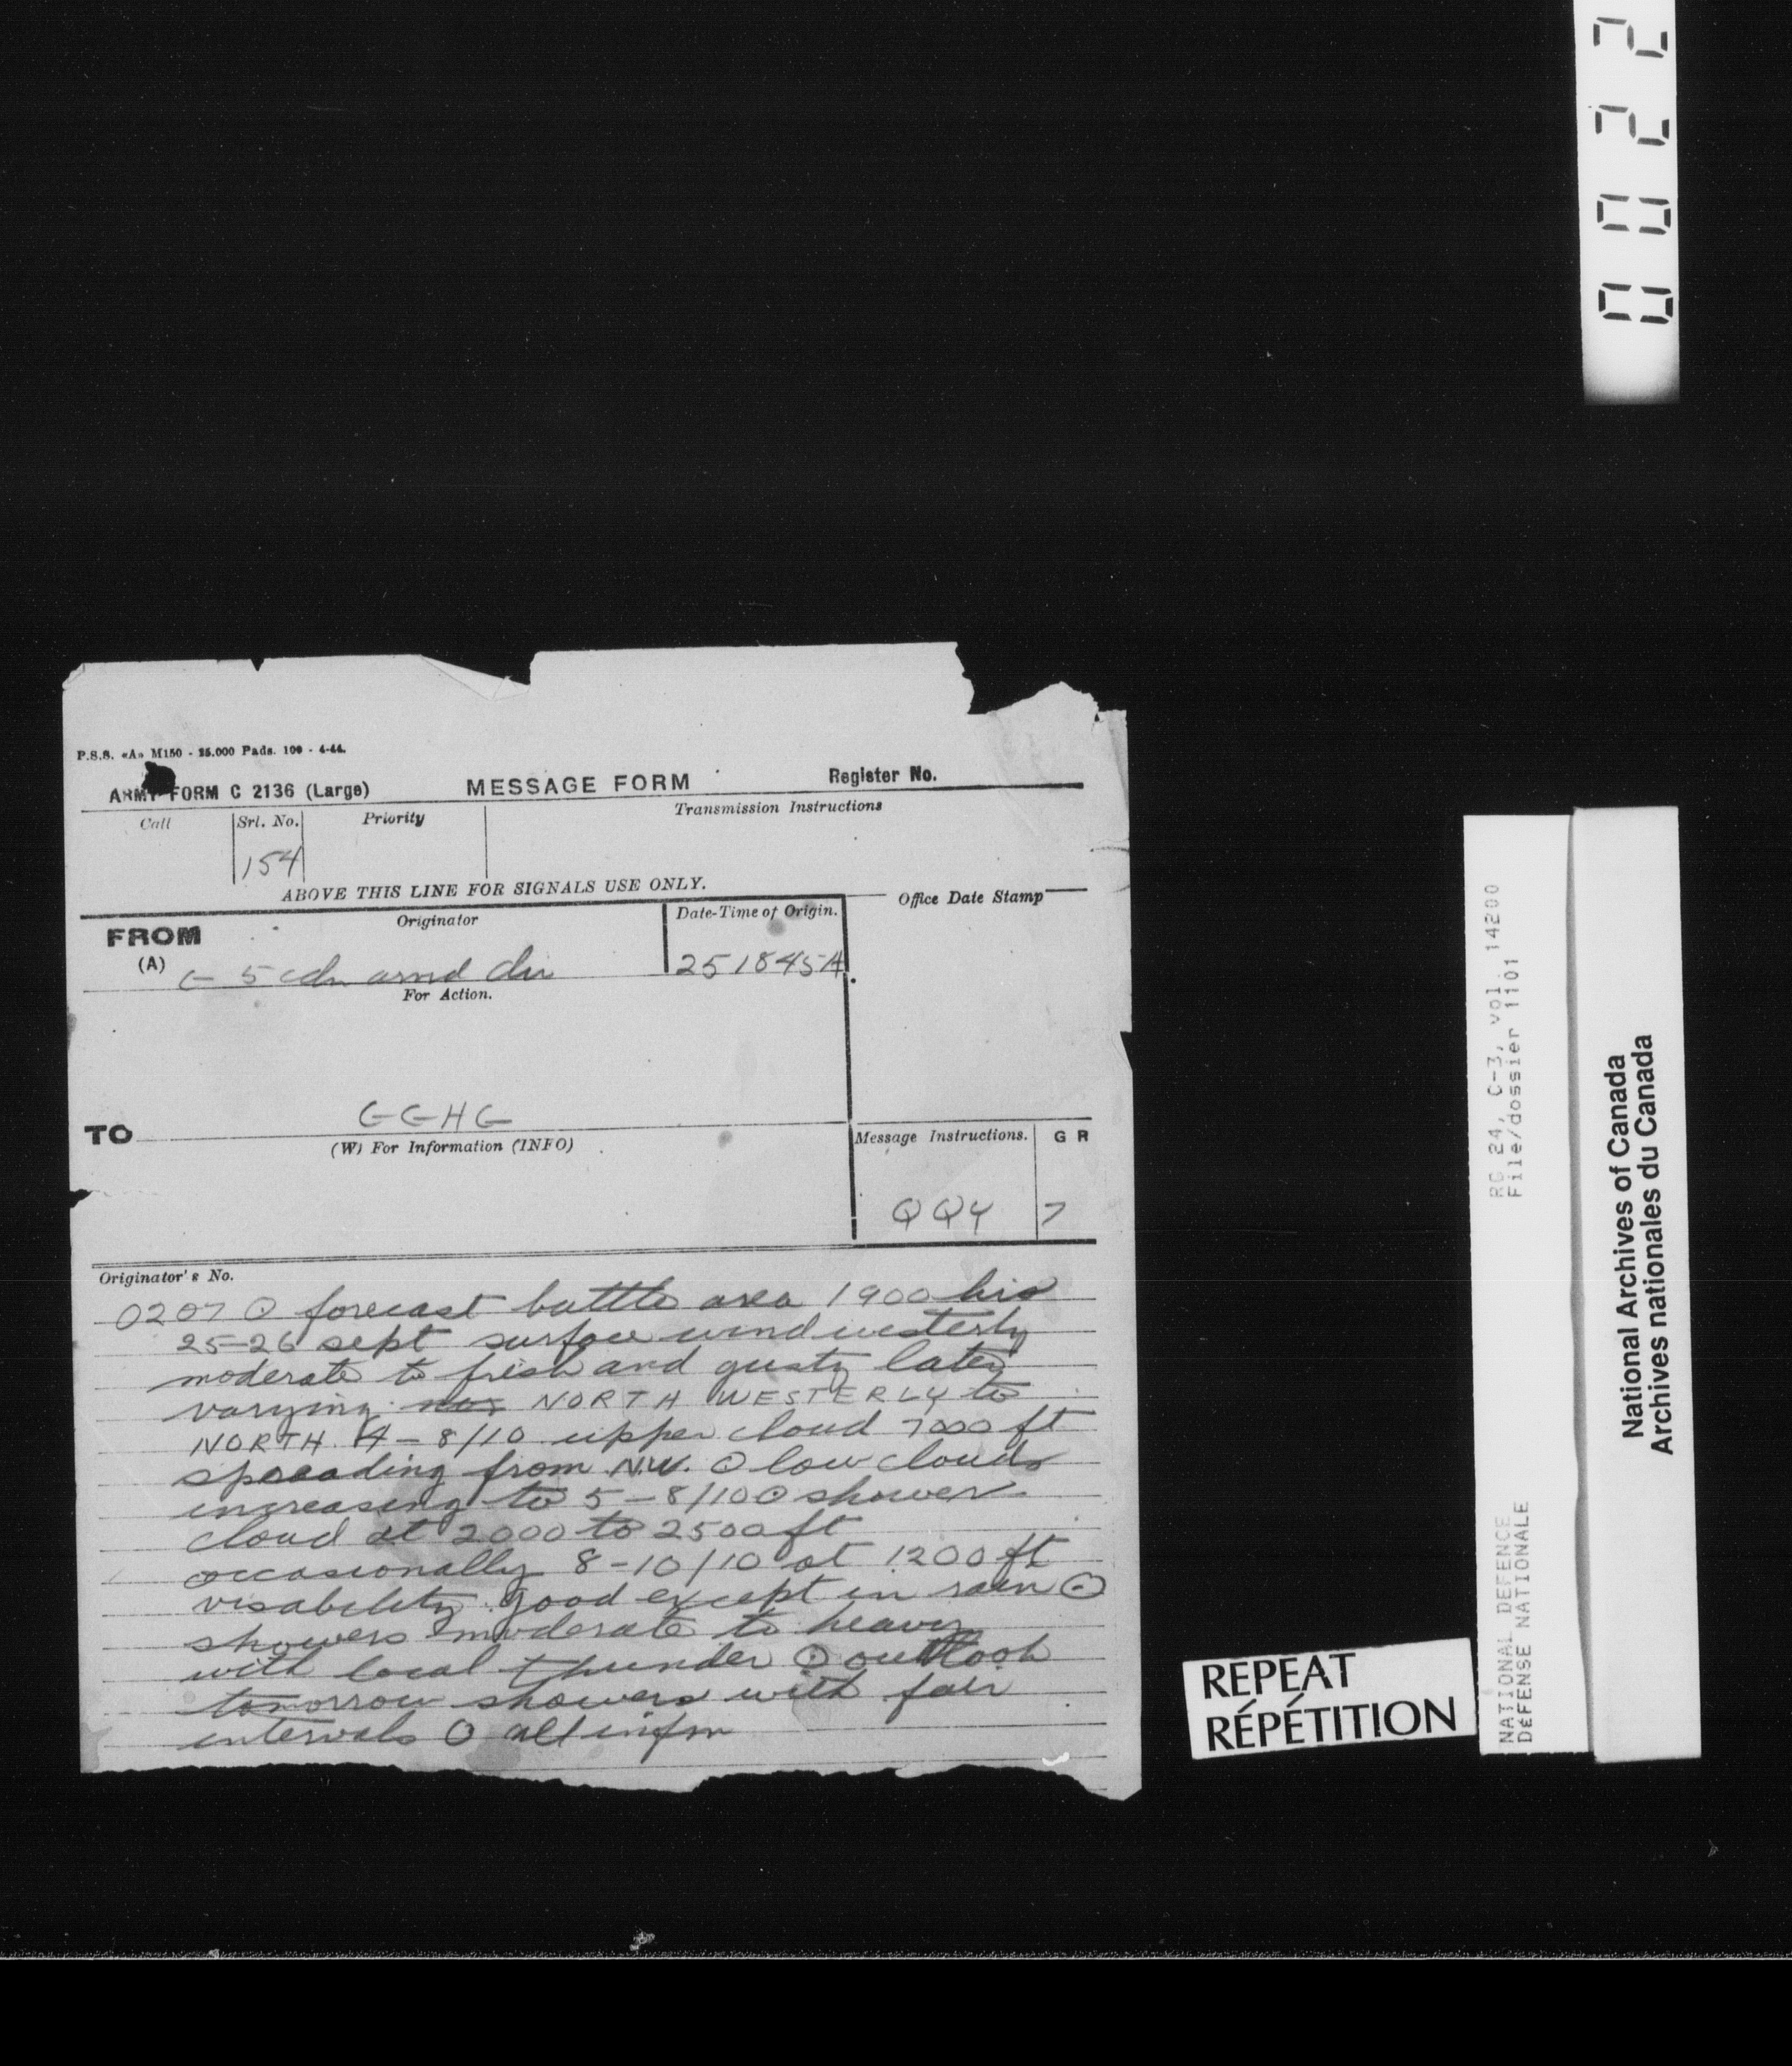 0022
P.S.S. «A» M150 - 25.000 Pads. 100 - 4-44.
ARMY FORM C 2136 (Large) MESSAGE FORM Register No.
Call Srl. No. Priority Transmission Instructions
154
ABOVE THIS LINE FOR SIGNALS USE ONLY.
FROM Originator Date-Time of Origin. Office Date Stamp
(A) G 5 cdn armd div 251845A
For Action.
TO GGHG
(W) For Information (INFO) Message Instructions. G R
QQY 7
Originator's No.
0207 ⊙ forecast battle area 1900 hrs
25-26 sept surface wind westerly
moderate to fresh and gusty later
varying NORTH WESTERLY to
NORTH. 4-8/10 upper cloud 7000 ft
spreading from N.W. ⊙ low clouds
increasing to 5-8/10 ⊙ shower
cloud at 2000 to 2500 ft
occasionally 8-10/10 at 1200 ft
visability good except in rain ⊙
showers moderate to heavy
with local thunder ⊙ outlook
tomorrow showers with fair
intervals ⊙ all infm
REPEAT
RÉPÉTITION
RG 24, C-3, vol. 14200
File/dossier 1101
NATIONAL DEFENCE
DÉFENSE NATIONALE
National Archives of Canada
Archives nationales du Canada